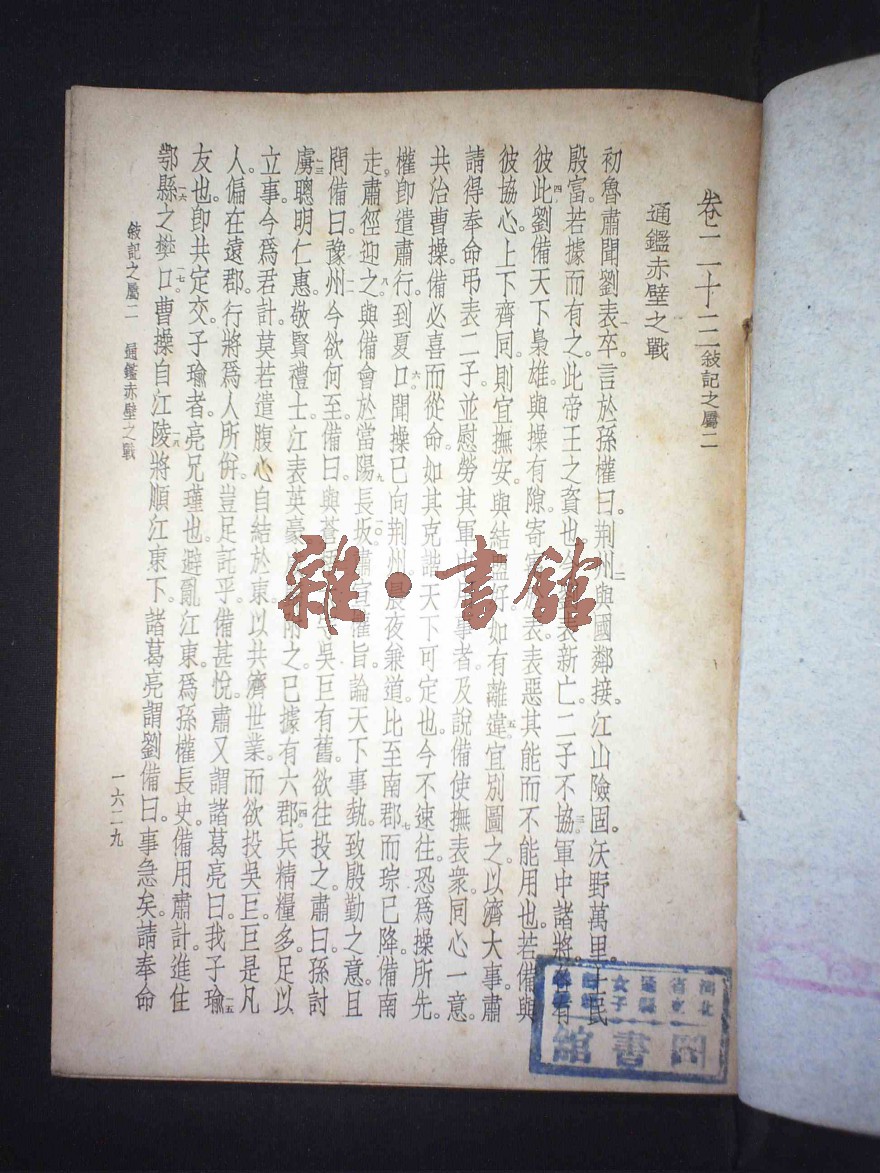 卷二十二 敍記之屬二
通鑑赤壁之戰
初魯肅聞劉表卒。言於孫權曰。荆州與國鄰接。江山險固。沃野萬里。士民
殷富。若據而有之。此帝王之資也。表新亡。二子不協。軍中諸將。有
彼此。劉備天下梟雄。與操有隙。寄寓於表。表惡其能而不能用也。若備與
彼協心。上下齊同。則宜撫安。與結盟好。如有離違。宜別圖之。以濟大事。肅
請得奉命弔表二子。並慰勞其軍中用事者。及說備使撫表衆。同心一意。
共治曹操。備必喜而從命。如其克諧。天下可定也。今不速往。恐爲操所先。
權卽遣肅行。到夏口。聞操已向荆州。晨夜兼道。比至南郡。而琮已降。備南
走。肅徑迎之。與備會於當陽長坂。肅宣權旨。論天下事埶。致殷勤之意。且
問備曰。豫州今欲何至。備曰。與蒼守吳巨有舊。欲往投之。肅曰。孫討
虜聰明仁惠。敬賢禮士。江表英豪。附之。已據有六郡。兵精糧多。足以
立事。今爲君計。莫若遣腹心自結於東。以共濟世業。而欲投吳巨。巨是凡
人。偏在遠郡。行將爲人所併。豈足託乎。備甚悅。肅又謂諸葛亮曰。我子瑜
友也。卽共定交。子瑜者。亮兄瑾也。避亂江東。爲孫權長史。備用肅計。進住
鄂縣之樊口。曹操自江陵將順江東下。諸葛亮謂劉備曰。事急矣。請奉命
敍記之屬二 通鑑赤壁之戰
一六二九
雜·書館
圖書館